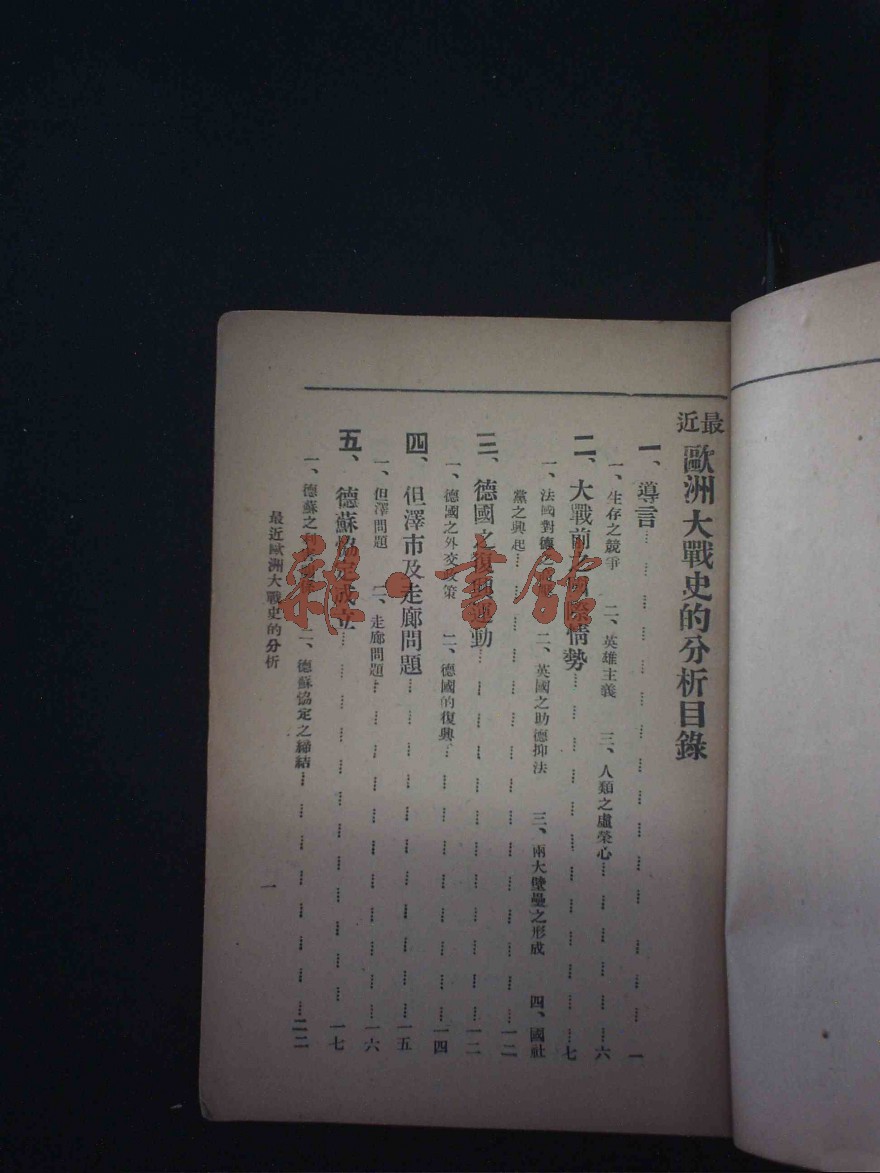 最近歐洲大戰史的分析目錄
一、導言…………一
一、生存之競爭 二、英雄主義 三、人類之虛榮心…………六
二、大戰前之國際情勢…………七
一、法國對德之 二、英國之助德抑法 三、兩大壁壘之形成 四、國社
黨之興起…………一二
三、德國之復興運動…………一二
一、德國之外交政策 二、德國的復興…………一四
四、但澤市及走廊問題…………一五
一、但澤問題 二、走廊問題…………一六
五、德蘇協定成立…………一七
一、德蘇之 二、德蘇協定之締結…………二二
最近歐洲大戰史的分析
一
雜·書館